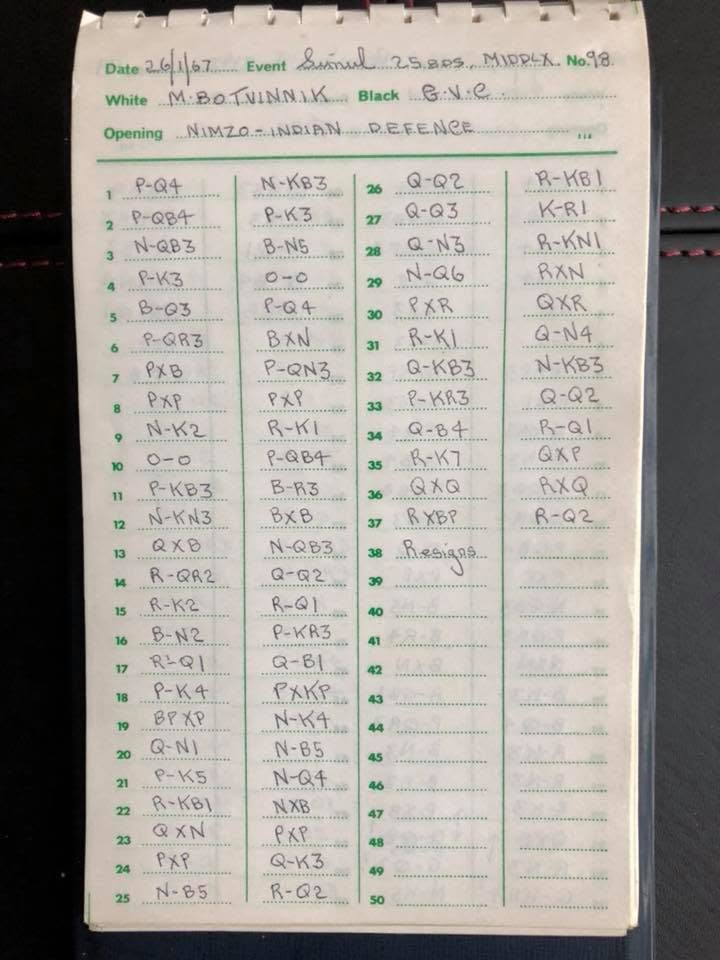 Date 26/1/67 Event Simul 25 BDS, MIDDLX. No. 98
White M. BOTVINNIK Black G.V.C.
Opening NIMZO-INDIAN DEFENCE
1 P-Q4 N-KB3
2 P-QB4 P-K3
3 N-QB3 B-N5
4 P-K3 O-O
5 B-Q3 P-Q4
6 P-QR3 BXN
7 PXB P-QN3
8 PXP PXP
9 N-K2 R-K1
10 O-O P-QB4
11 P-KB3 B-R3
12 N-KN3 BXB
13 QXB N-QB3
14 R-QR2 Q-Q2
15 R-K2 R-Q1
16 B-N2 P-KR3
17 R-Q1 Q-B1
18 P-K4 PXKP
19 BPXP N-K4
20 Q-N1 N-B5
21 P-K5 N-Q4
22 R-KB1 NXB
23 QXN PXP
24 PXP Q-K3
25 N-B5 R-Q2
26 Q-Q2 R-KB1
27 Q-Q3 K-R1
28 Q-N3 R-KN1
29 N-Q6 RXN
30 PXR QXR
31 R-K1 Q-N4
32 Q-KB3 N-KB3
33 P-KR3 Q-Q2
34 Q-B4 R-Q1
35 R-K7 QXP
36 QXQ RXQ
37 RXBP R-Q2
38 Resigns
39
40
41
42
43
44
45
46
47
48
49
50